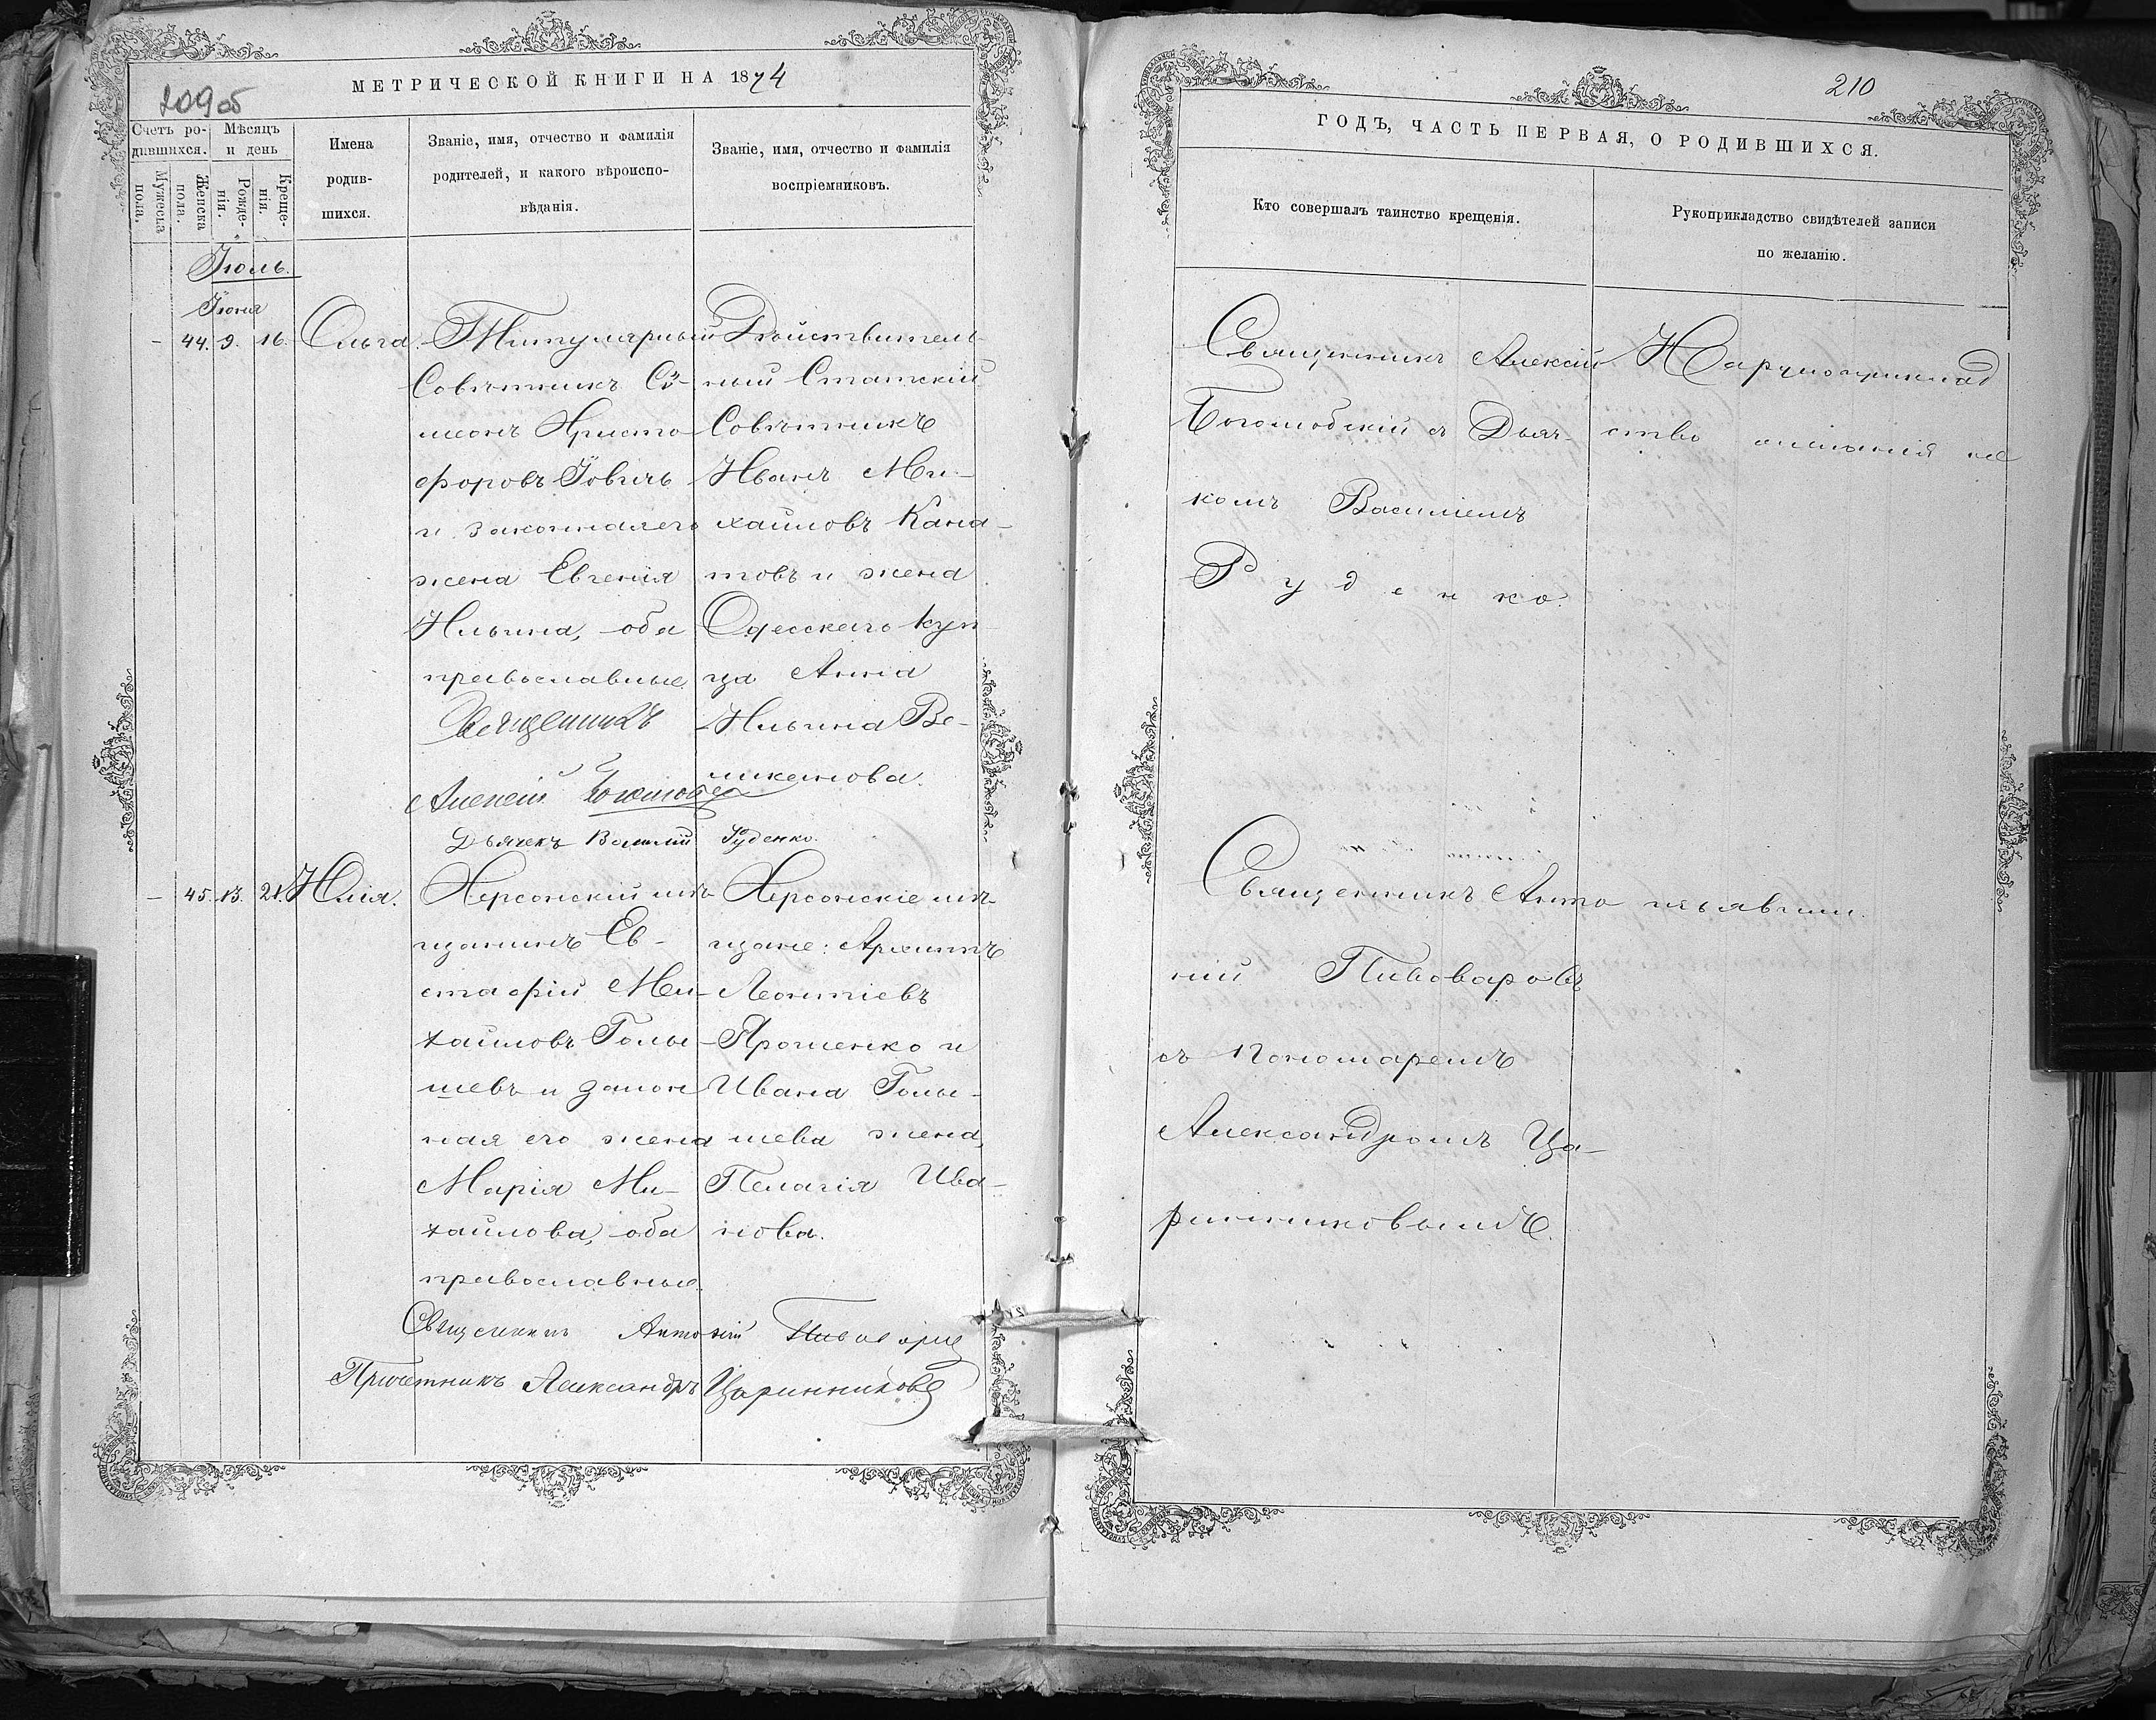 МЕТРИЧЕСКОЙ КНИГИ НА 1874
209 об
Счетъ ро-
дившихся.
Мѣсяцъ
и день
Мужеска
пола.
Женска
пола.
Рожде-
нія.
Креще-
нія.
Имена
родив-
шихся.
Званіе, имя, отчество и фамилія
родителей, и какого вѣроиспо-
вѣданія.
Званіе, имя, отчество и фамилія
воспріемниковъ.
Іюль.
Іюня
- 44. 9. 16. Ольга.
Титулярный
Совѣтникъ Сѵ-
меонъ Христо
форовъ Іовичъ
и законная его
жена Евгенія
Ильина, оба
православные.
Священникъ
Алексій
Дьячекъ Василій Руденко.
Дѣйствитель-
ный Статскій
Совѣтникъ
Иванъ Ми-
хайловъ Кана-
товъ и жена
Одесскаго куп
ца Анна
Ильина Ве-
ликанова.
- 45. 13. 21. Юлія.
Херсонскій мѣ-
щанинъ Ев-
стафій Ми-
хайловъ Голы-
шевъ и закон
ная его жена
Марія Ми-
хайлова, оба
православные.
Херсонскіе мѣ-
щане: Архипъ
Леонтіевъ
Ярошенко и
Ивана Голы-
шева жена,
Пелагія Ива-
нова.
Священникъ Антоній Пивоваровъ
Причетникъ Александръ Царинниковъ
210
ГОДЪ, ЧАСТЬ ПЕРВАЯ, О РОДИВШИХСЯ.
Кто совершалъ таинство крещенія.
Рукоприкладство свидѣтелей записи
по желанію.
Священникъ Алексій
Боголюбскій съ Дьяч-
комъ Василіемъ
Руденко.
На рукоприклад
ство желанія не
Священникъ Анто
ній Пивоваровъ
съ Пономаремъ
Александромъ Ца-
ринниковымъ.
изъявили.